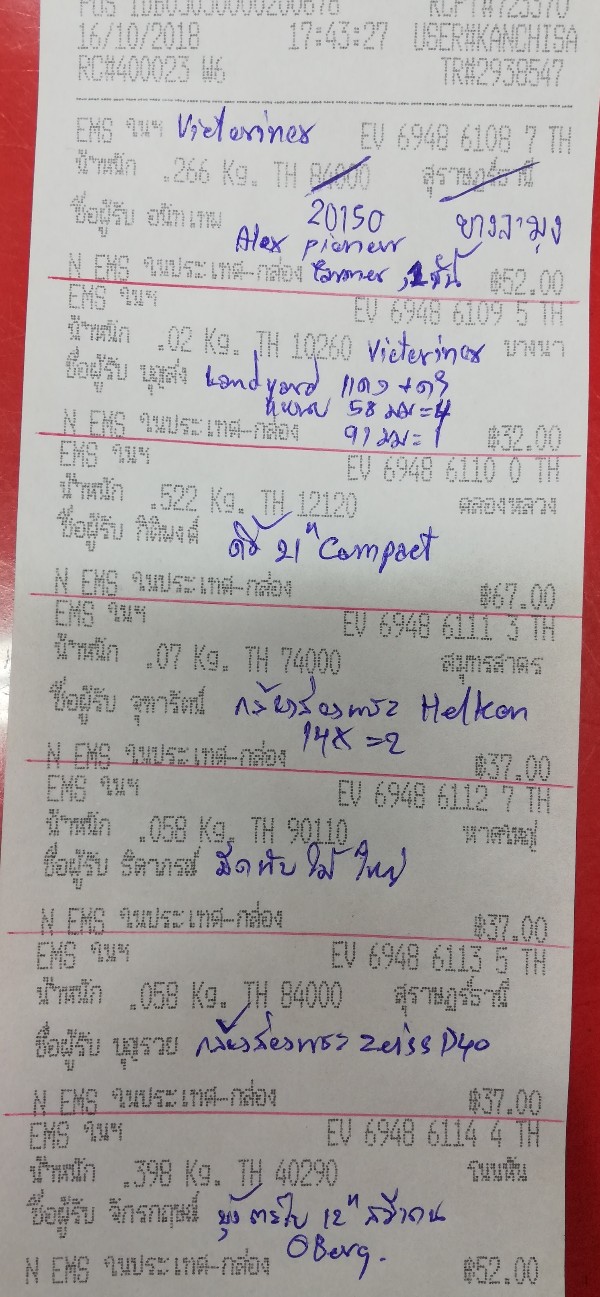 16/10/2018 17:43:27 USER#KANCHISA
RC#400023 W6 TR#2938547
EMS ในฯ Victorinox EV 6948 6108 7 TH
น้ำหนัก .266 Kg. TH 84000 สุราษฎร์ธานี
ชื่อผู้รับ อนิกเทพ 20150 บางละมุง
Alex pioneer
N EMS ในประเทศ-กล่อง ฿52.00
EMS ในฯ EV 6948 6109 5 TH
น้ำหนัก .02 Kg. TH 10260 Victorinox บางนา
ชื่อผู้รับ บุญส่ง Landyard แดง+ดำ
แหนบ 58 มม = 4
N EMS ในประเทศ-กล่อง 91 มม = 1 ฿32.00
EMS ในฯ EV 6948 6110 0 TH
น้ำหนัก .522 Kg. TH 12120 คลองหลวง
ชื่อผู้รับ กิติพงศ์ ดิ้ว 21" Compact
N EMS ในประเทศ-กล่อง ฿67.00
EMS ในฯ EV 6948 6111 3 TH
น้ำหนัก .07 Kg. TH 74000 สมุทรสาคร
ชื่อผู้รับ จุฑารัตน์ กล้องส่องพระ Helkon
14X = 2
N EMS ในประเทศ-กล่อง ฿37.00
EMS ในฯ EV 6948 6112 7 TH
น้ำหนัก .058 Kg. TH 90110 หาดใหญ่
ชื่อผู้รับ ธิดาภรณ์ มีดพับ ไม้ ใหญ่
N EMS ในประเทศ-กล่อง ฿37.00
EMS ในฯ EV 6948 6113 5 TH
น้ำหนัก .058 Kg. TH 84000 สุราษฎร์ธานี
ชื่อผู้รับ บุญรวย กล้องส่องพระ zeiss D40
N EMS ในประเทศ-กล่อง ฿37.00
EMS ในฯ EV 6948 6114 4 TH
น้ำหนัก .398 Kg. TH 40290 โนนหัน
ชื่อผู้รับ จักรกฤษณ์ บุ้งตะไบ 12" สวีเดน
OBerg.
N EMS ในประเทศ-กล่อง ฿52.00